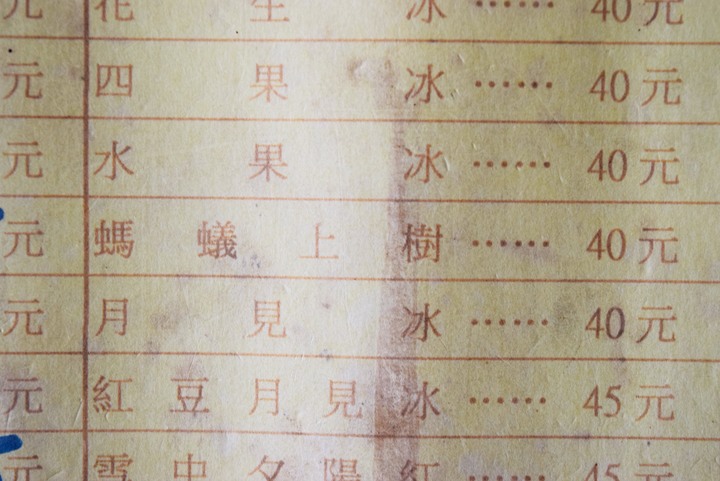 元 花生冰 ······ 40元
元 四果冰 ······ 40元
元 水果冰 ······ 40元
元 螞蟻上樹 ······ 40元
元 月見冰 ······ 40元
元 紅豆月見冰 ······ 45元
元 雪中夕陽紅 ······ 45元